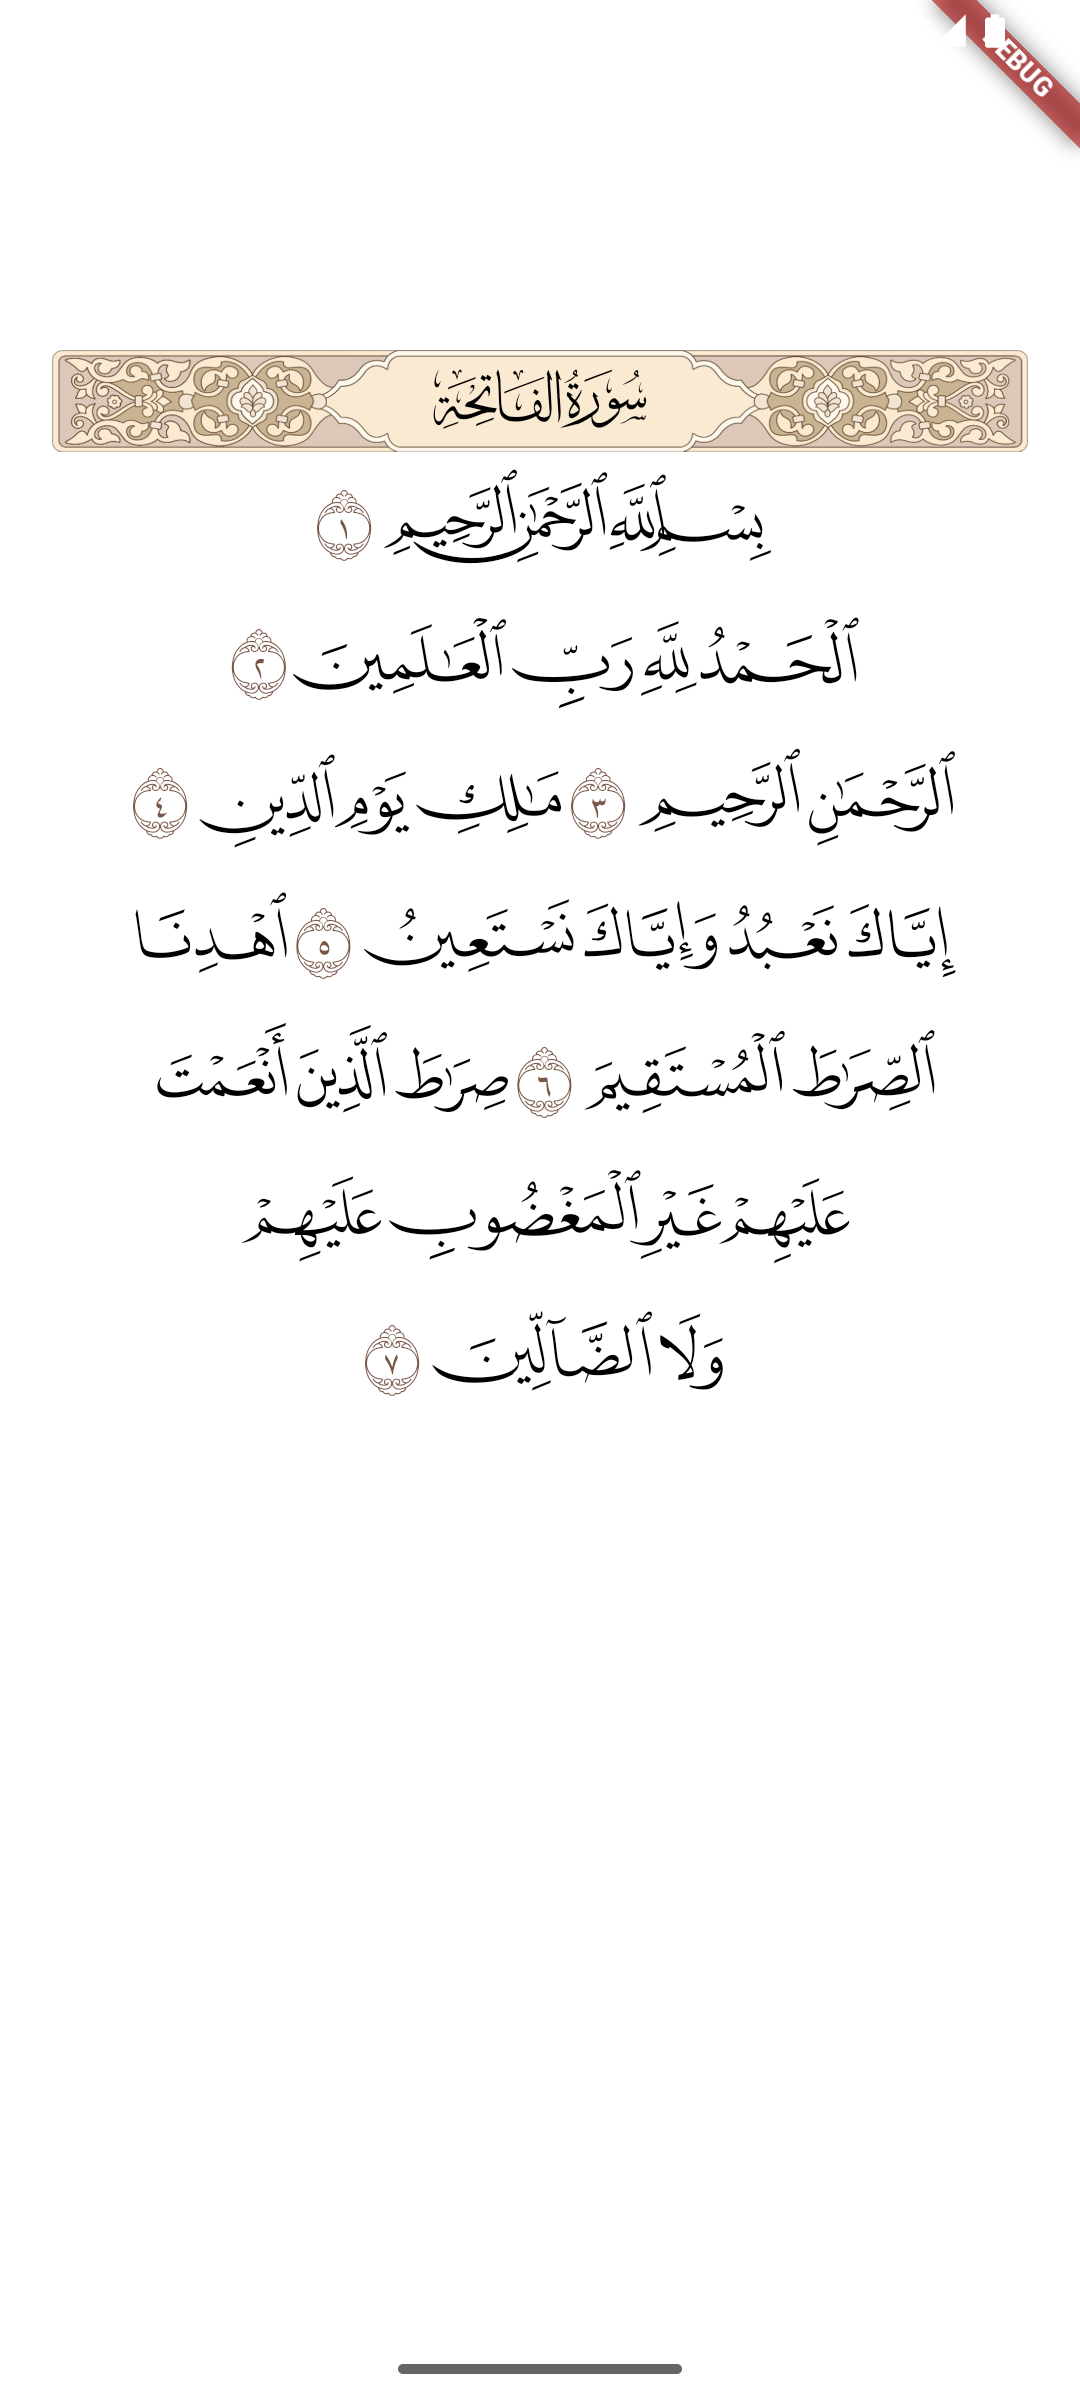 DEBUG
سُورَةُ الفَاتِحَةِ
بِسۡمِ ٱللَّهِ ٱلرَّحۡمَٰنِ ٱلرَّحِيمِ ١
ٱلۡحَمۡدُ لِلَّهِ رَبِّ ٱلۡعَٰلَمِينَ ٢
ٱلرَّحۡمَٰنِ ٱلرَّحِيمِ ٣ مَٰلِكِ يَوۡمِ ٱلدِّينِ ٤
إِيَّاكَ نَعۡبُدُ وَإِيَّاكَ نَسۡتَعِينُ ٥ ٱهۡدِنَا
ٱلصِّرَٰطَ ٱلۡمُسۡتَقِيمَ ٦ صِرَٰطَ ٱلَّذِينَ أَنۡعَمۡتَ
عَلَيۡهِمۡ غَيۡرِ ٱلۡمَغۡضُوبِ عَلَيۡهِمۡ
وَلَا ٱلضَّآلِّينَ ٧